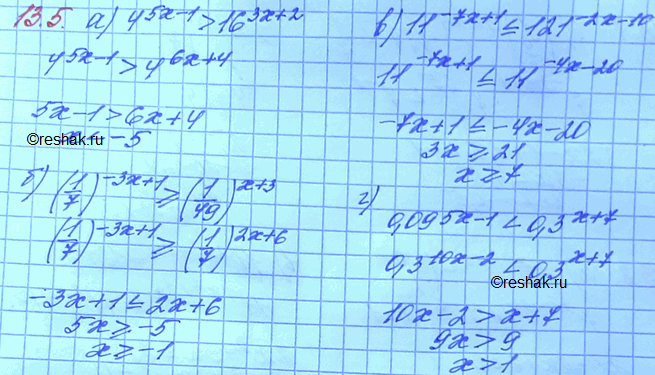 13.5. а) 4^(5x-1) > 16^(3x+2)
4^(5x-1) > 4^(6x+4)
5x-1 > 6x+4
x < -5
©reshak.ru
б) (1/7)^(-3x+1) ≥ (1/49)^(x+3)
(1/7)^(-3x+1) ≥ (1/7)^(2x+6)
-3x+1 ≤ 2x+6
5x ≥ -5
x ≥ -1
в) 11^(-7x+1) ≤ 121^(-2x-10)
11^(-7x+1) ≤ 11^(-4x-20)
-7x+1 ≤ -4x-20
3x ≥ 21
x ≥ 7
г)
0,09^(5x-1) < 0,3^(x+7)
0,3^(10x-2) < 0,3^(x+7)
©reshak.ru
10x-2 > x+7
9x > 9
x > 1